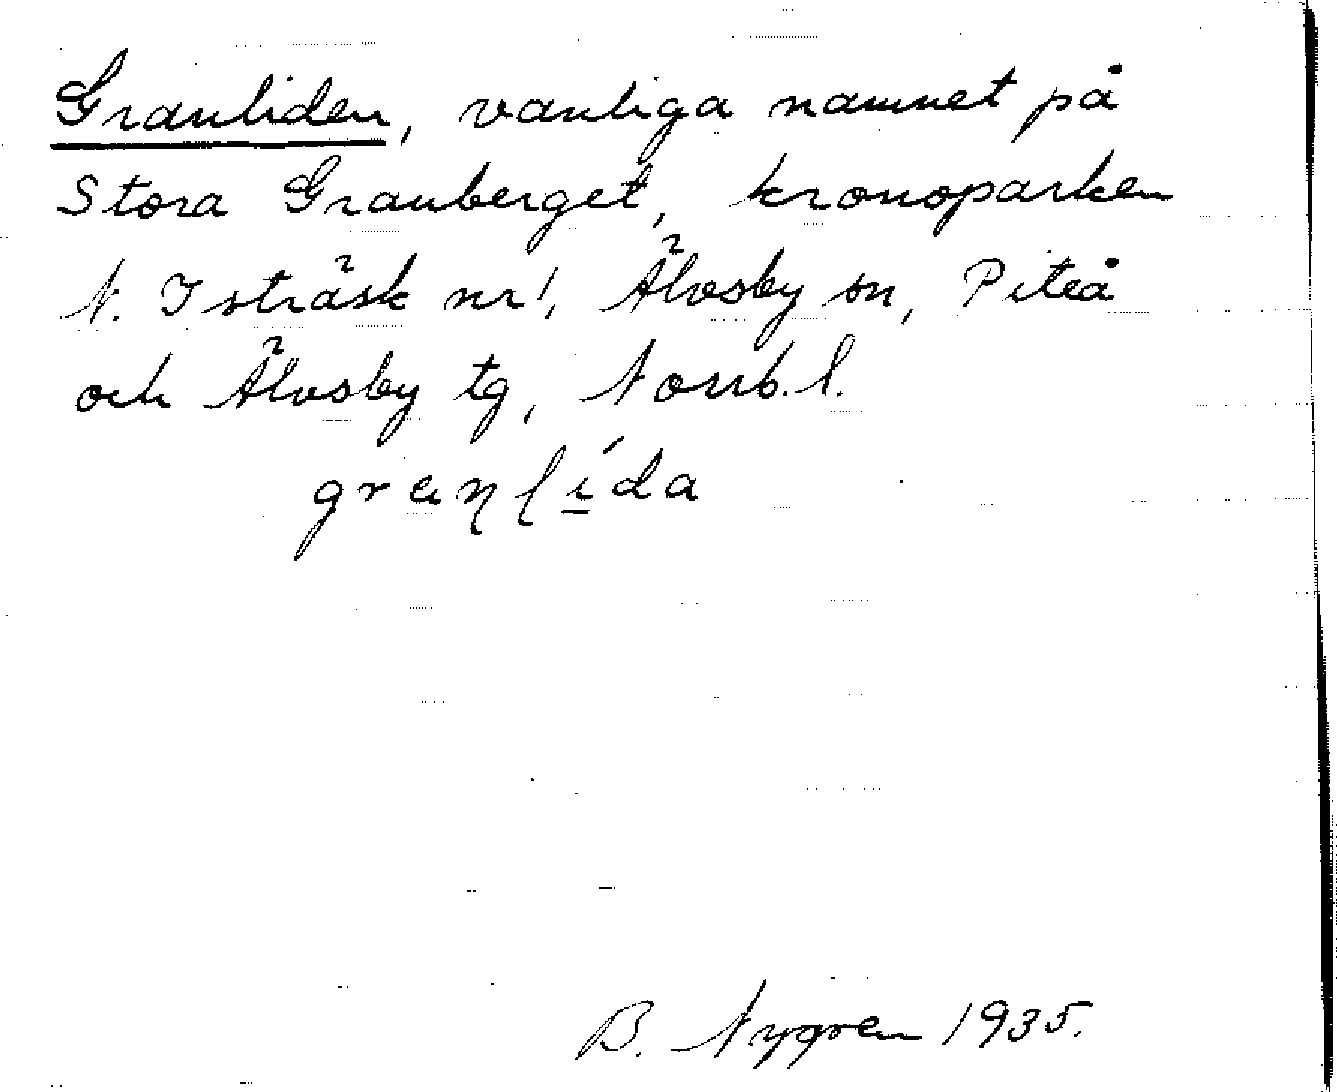 Granliden, vanliga namnet på
Stora Granberget, kronoparken
N. Isträsk nr 1, Älvsby sn, Piteå
och Älvsby tg, Norrb. l.
B. Nygren 1935.